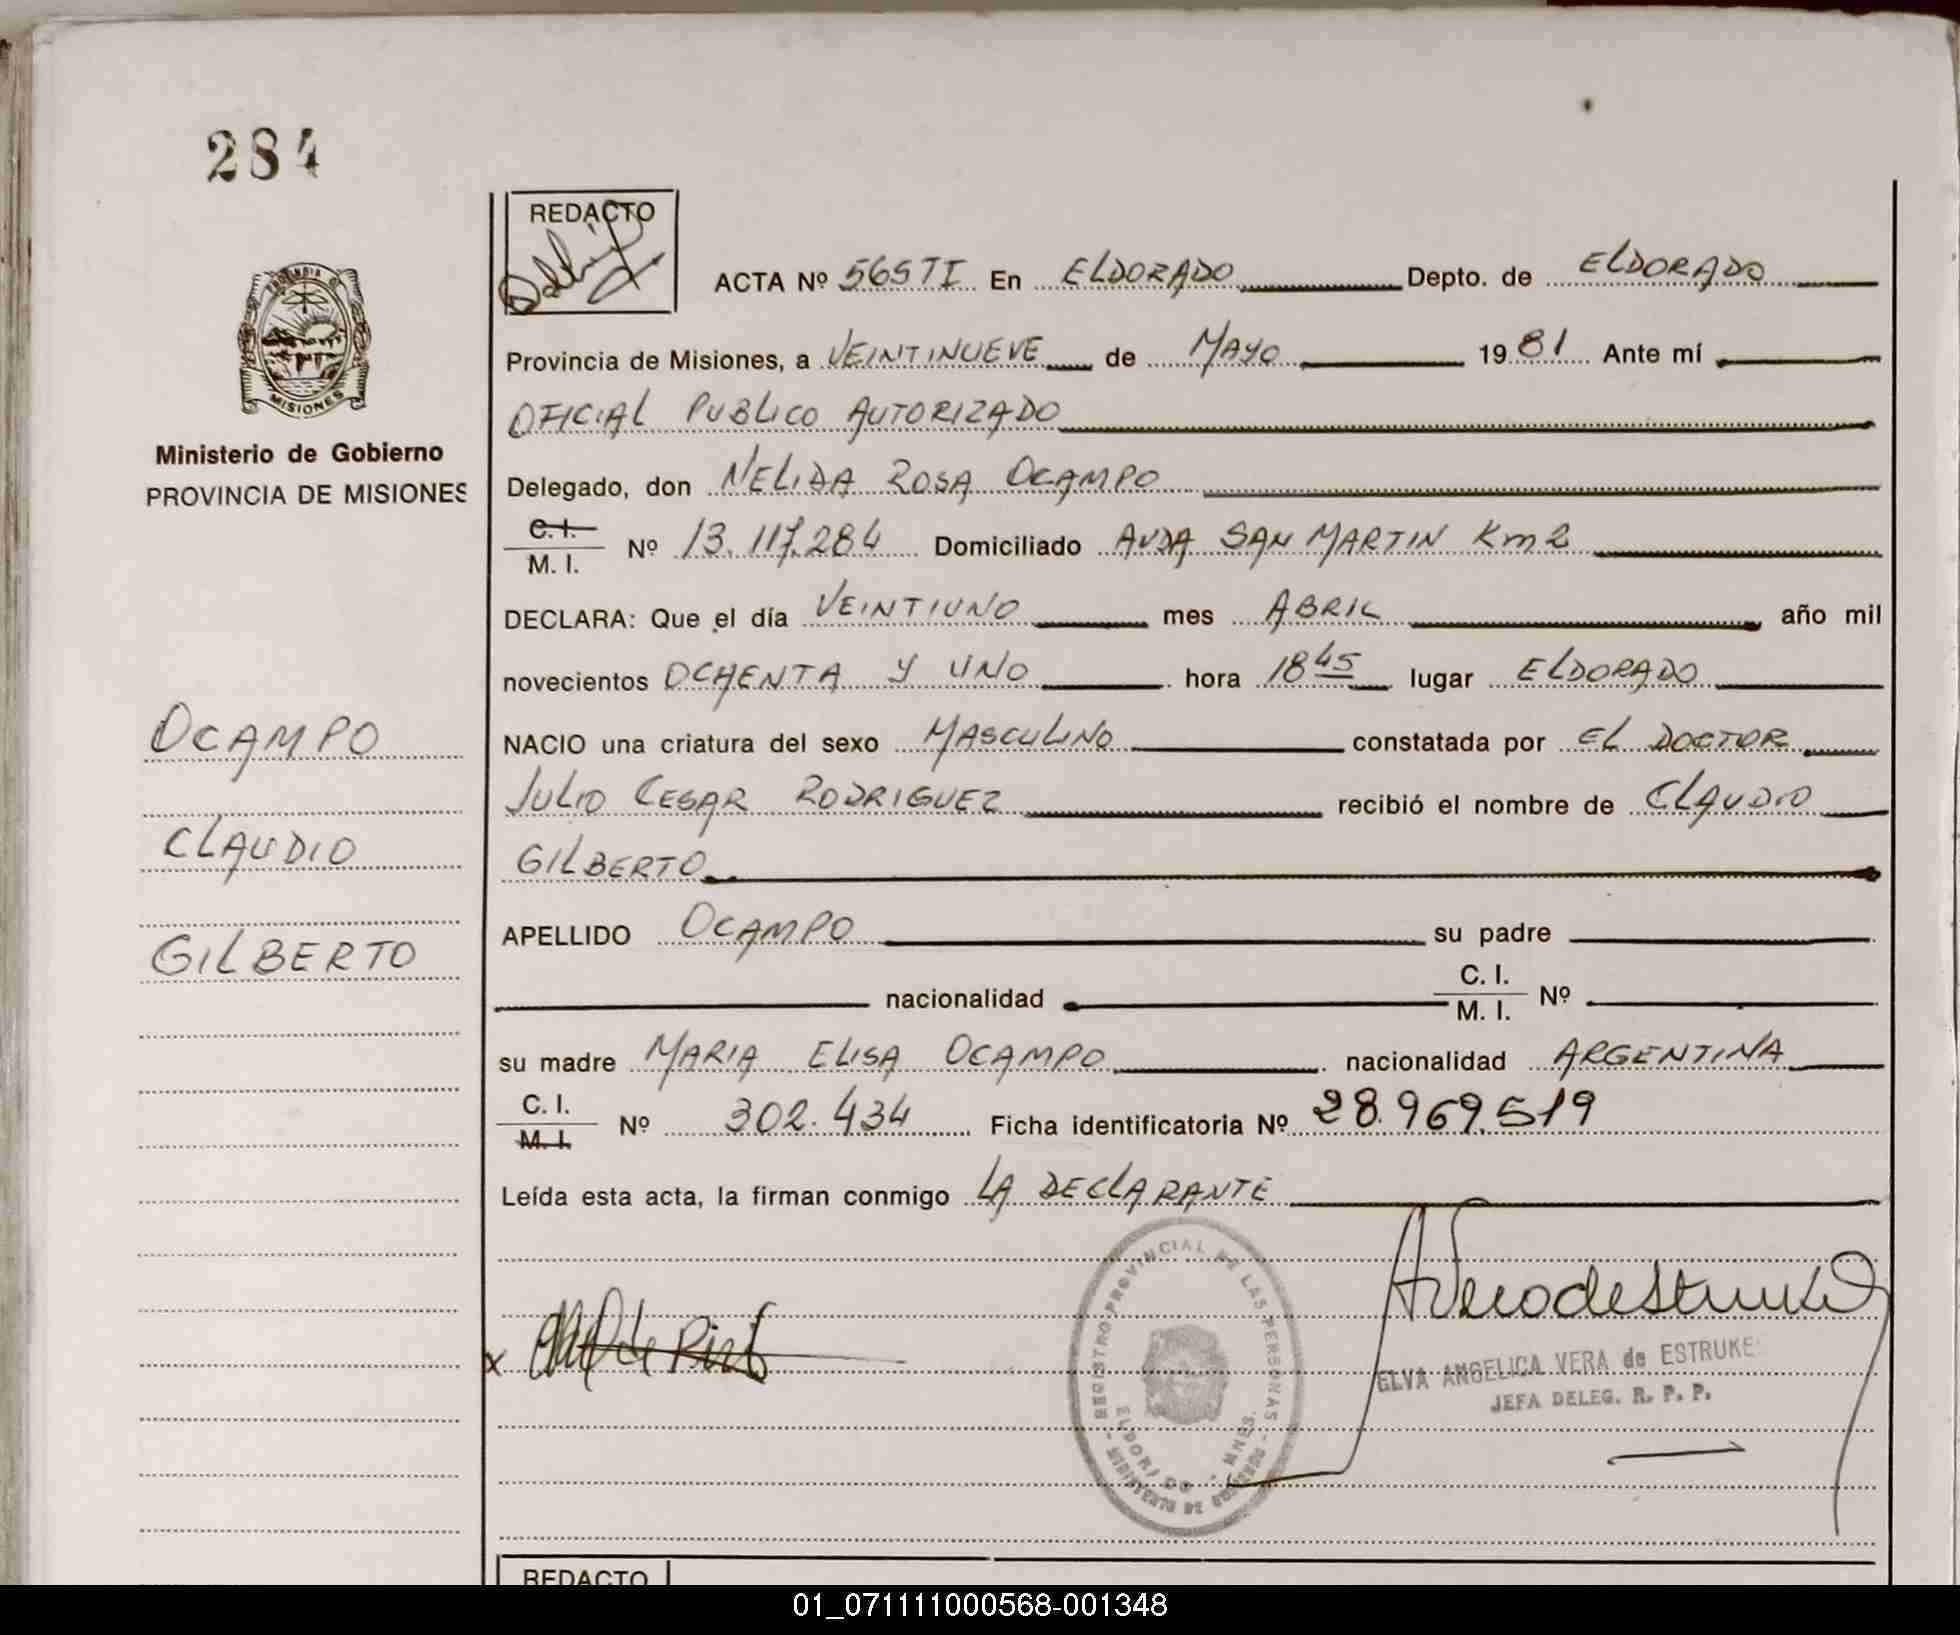 284
REDACTO
ACTA Nº 565 TI En ELDORADO Depto. de ELDORADO
PROVINCIA DE MISIONES
Provincia de Misiones, a VEINTINUEVE de MAYO 1981 Ante mí
OFICIAL PUBLICO AUTORIZADO
Ministerio de Gobierno
PROVINCIA DE MISIONES
Delegado, don NELIDA ROSA OCAMPO
C. I. / M. I. Nº 13.117.284 Domiciliado AVDA SAN MARTIN Km 2
DECLARA: Que el día VEINTIUNO mes ABRIL año mil
novecientos OCHENTA Y UNO hora 18 45 lugar ELDORADO
OCAMPO
NACIO una criatura del sexo MASCULINO constatada por EL DOCTOR
JULIO CESAR RODRIGUEZ recibió el nombre de CLAUDIO
CLAUDIO
GILBERTO
APELLIDO OCAMPO su padre
GILBERTO
nacionalidad C. I. / M. I. Nº
su madre MARIA ELISA OCAMPO nacionalidad ARGENTINA
C. I. / M. I. Nº 302.434 Ficha identificatoria Nº 28.969.519
Leída esta acta, la firman conmigo LA DECLARANTE
REGISTRO PROVINCIAL DE LAS PERSONAS
ELDORADO - MNES.
MINISTERIO DE GOBIERNO
x
ELVA ANGELICA VERA de ESTRUKE
JEFA DELEG. R. P. P.
REDACTO
01_071111000568-001348